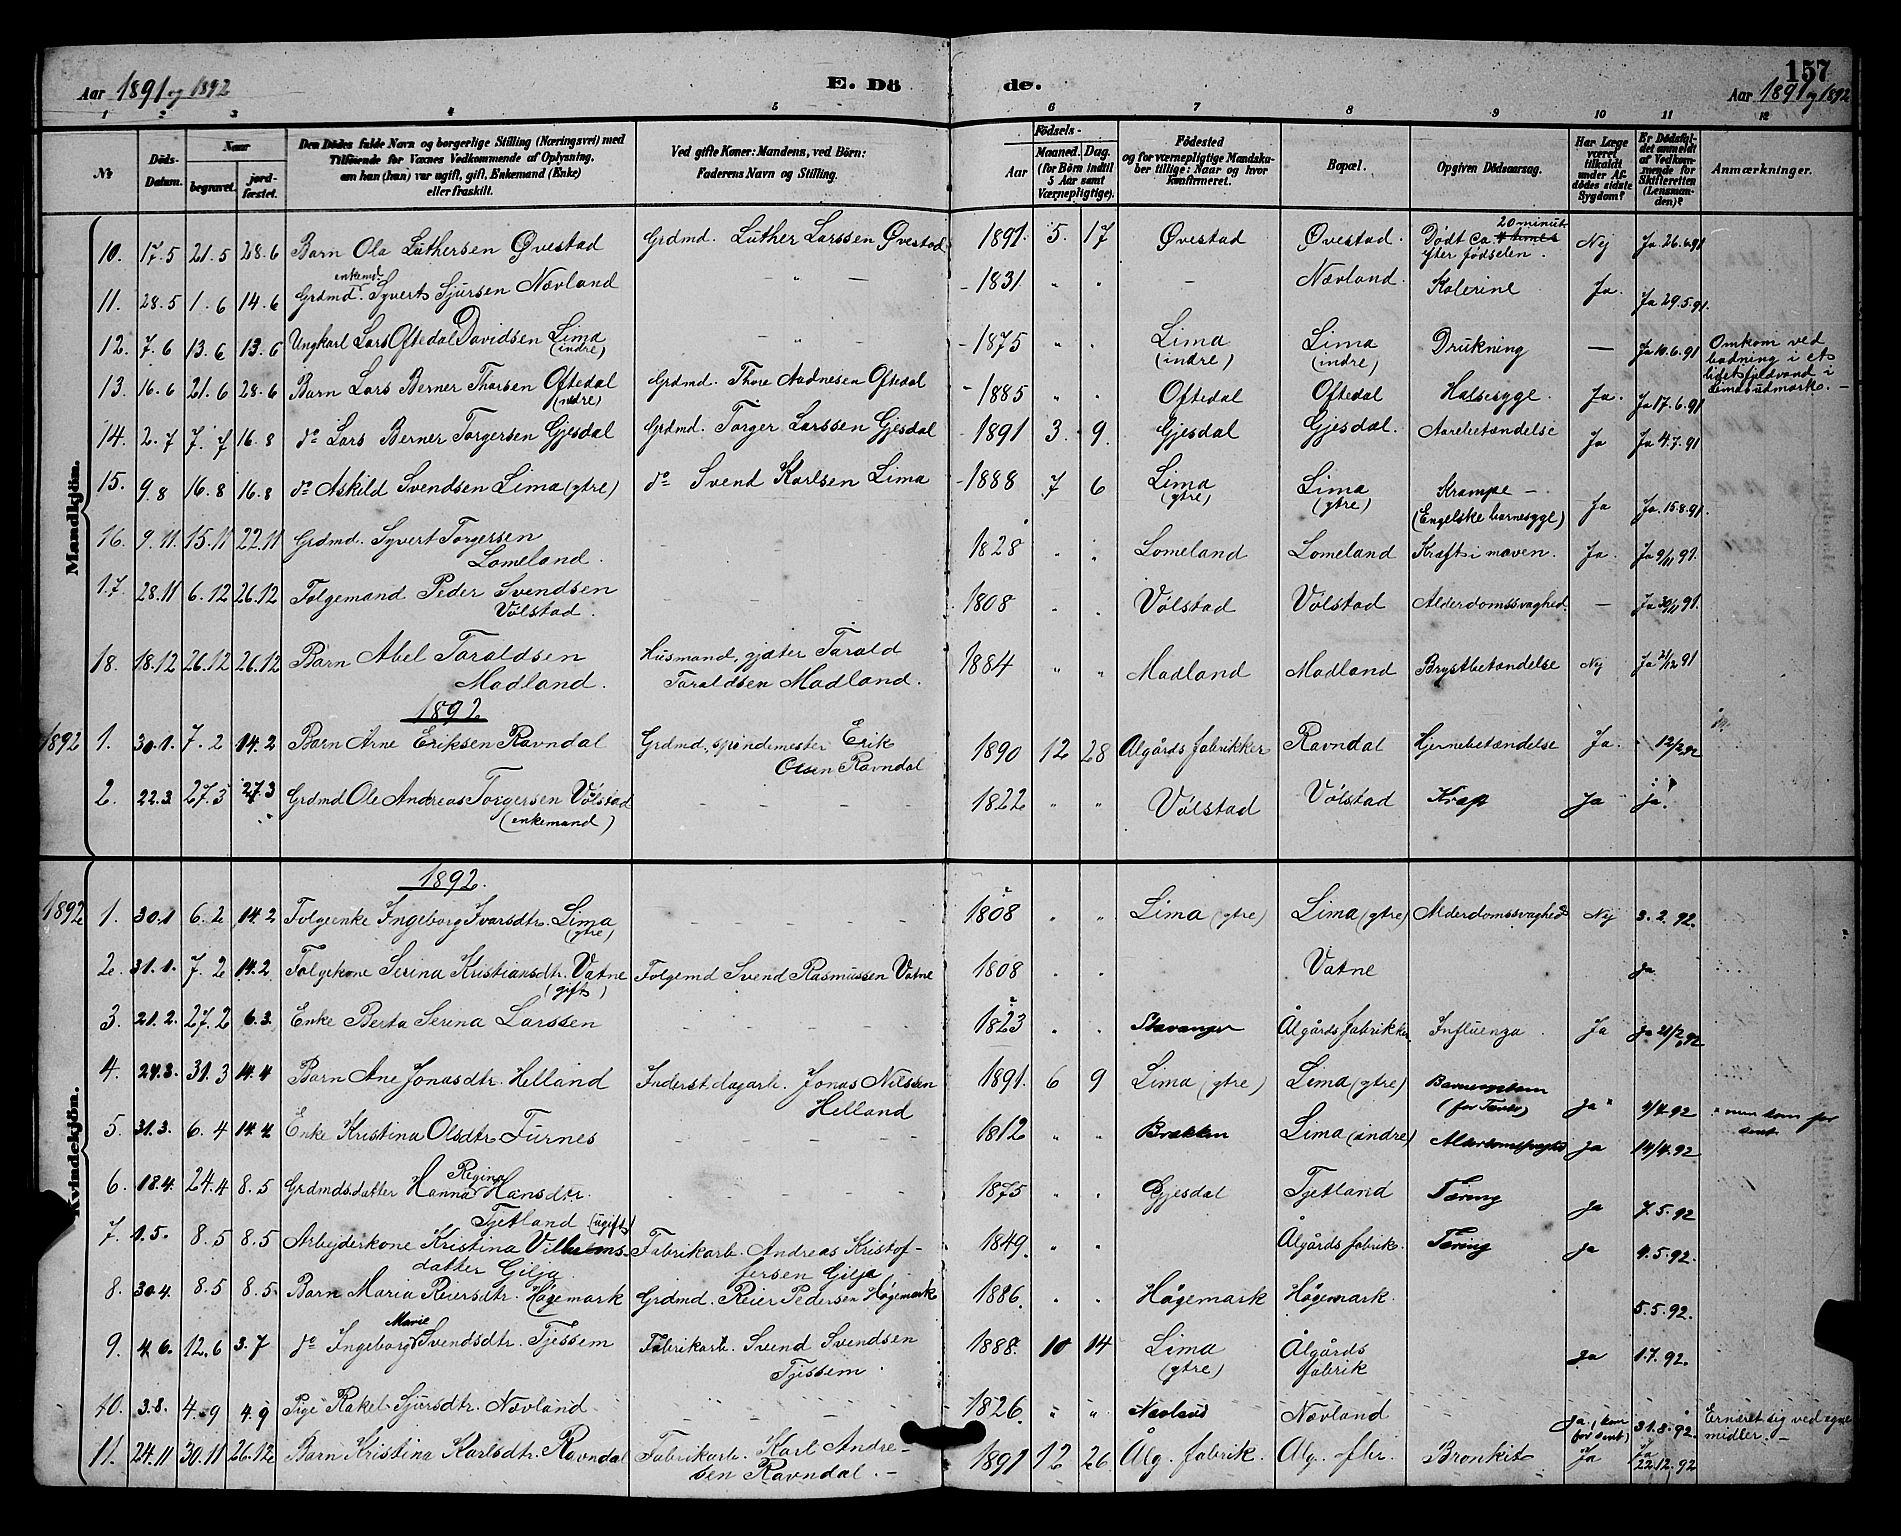 157
Aar 1891 og 1892 E. Döde. Aar 1891 og 1892
1 2 3 4 5 6 7 8 9 10 11 12
No
Döds-Datum.
Naar
begravet. jordfæstet.
Den Dödes fulde Navn og borgerlige Stilling (Næringsvei) med
Tilföiende for Voxnes Vedkommende af Oplysning,
om han (hun) var ugift, gift, Enkemand (Enke)
eller fraskilt.
Ved gifte Koner: Mandens, ved Börn:
Faderens Navn og Stilling.
Födsels-
Aar Maaned. Dag.
(for Börn indtil 5 Aar samt Værnepligtige).
Födested
og for værnepligtige Mandskaber tillige: Naar og hvor konfirmeret.
Bopæl.
Opgiven Dödsaarsag.
Har Læge været tilkaldt under Afdödes sidste Sygdom?
Er Dödsfaldet anmeldt af Vedkommende for Skifteretten (Lensmanden)?
Anmærkninger.
Mandkjön.
10. 17.5 21.5 28.6 Barn Ola Luthersen Øvestad Grdmd. Luther Larssen Øvestad 1891. 5. 17 Øvestad Øvestad. Dødt ca. 20 minut. efter fødselen. Nej Ja 26.6.91
11. 28.5 1.6 14.6 Grdmd. enkemd. Syvert Sjursen Nævland " 1831 " " - Nævland. Kolerine Ja. Ja 29.5.91.
12. 7.6 13.6 13.6 Ungkarl Lars Oftedal Davidsen Lima (indre) " 1875 " " Lima (indre) Lima (indre) Drukning — Ja 10.6.91 Omkom ved badning i et lidet fjeldvand i Lima's udmark.
13. 16.6 21.6 28.6 Barn Lars Berner Thorsen Oftedal (indre) Grdmd. Thore Aadnesen Oftedal 1885 " " Oftedal Oftedal Halsesyge. Ja. Ja 17.6.91
14. 2.7 7.7 16.8 do Lars Berner Torgersen Gjesdal Grdmd. Torger Larssen Gjesdal 1891 3. 9. Gjesdal Gjesdal. Aarebetændelse Ja Ja 4.7.91
15. 9.8 16.8 16.8 do Askild Svendsen Lima (ytre) do Svend Karlsen Lima 1888 7 6 Lima (ytre) Lima (ytre) Krampe — (Engelske barnesyge) Ja Ja. 15.8.91.
16. 9.11. 15.11 22.11 Grdmd. Syvert Torgersen Lomeland. 1828 " " Lomeland Lomeland Kræft i maven. Ja. Ja 9/11 91.
17. 28.11 6.12 26.12 Følgemand Peder Svendsen Vølstad. 1808 " " Vølstad Vølstad Alderdomssvaghed. — Ja 30/11 91.
18. 18.12 26.12 26.12 Barn Abel Taraldsen Madland. Husmand, gjæter Tarald Taraldsen Madland. 1884 " " Madland Madland Brystbetændelse Nej Ja 21/12 91
1892
1892 1. 30.1. 7.2 14.2 Barn Arne Eriksen Ravndal Grdmd, spindemester Erik Olsen Ravndal 1890 12 28 Ålgårds fabrikker Ravndal Hjernebetændelse Ja. 12/2 92
2. 22.3 27.3 27.3 Grdmd Ole Andreas Torgersen Vølstad (enkemand) 1822 " " Vølstad Vølstad Kræft Ja ja.
1892.
Kvindekjön.
1892 1. 30.1 6.2 14.2 Følgeenke Ingeborg Ivarsdtr. Lima (ytre) 1808 " " Lima (ytre) Lima (ytre) Alderdomssvaghed Nej 3.2.92.
2. 31.1. 7.2 14.2 Følgekone Serina Kristiansdtr. Vatne (gift) Følgemd Svend Rasmussen Vatne 1808 " " Vatne ja
3. 21.2. 27.2 6.3. Enke Berta Serina Larssen 1823 " " Stavanger Ålgårds fabrikker. Influenza. Ja ja 21/2 92
4. 24.3. 31.3 14.4 Barn Ane Jonasdtr. Helland Inderst. dagarb. Jonas Nilssen Helland 1891. 6 9 Lima (ytre) Lima (ytre) (for Tænder) ja " 4/4.92 " men kom for sent.
5. 31.3. 6.4 14.4 Enke Kristina Olsdtr Furnes 1812 " " Brekken Lima (indre) Alderdomssvaghed ja 14/4.92
6. 18.4. 24.4 8.5 Grdmdsdatter Hanna Regina Hansdtr. Tjetland (ugift) 1875 " " Gjesdal Tjetland Tæring ja 7.5.92
7. 1.5. 8.5 8.5 Arbejderkone Kristina Vilhelmsdatter Gilja Fabrikarb. Andreas Kristoffersen Gilja 1849. " " Ålgårds fabrik. Tæring ja 4.5.92.
8. 30.4. 8.5 8.5. Barn Maria Reiersdtr. Høgemark Grdmd. Reier Pedersen Høgemark 1886. " " Høgemark Høgemark. 5.5.92.
9. 4.6. 12.6 3.7 do Ingeborg Marie Svendsdtr. Tjessem Fabrikarb. Svend Svendsen Tjessem. 1888. 10 14 Lima (ytre) Ålgårds fabrik ja 1.7.92.
10. 3.8. 4.9 4.9 Pige Rakel Sjursdtr. Nævland 1826. " " Nævland Nævland ja, (kom for sent) 31.8.92. Ernæret sig ved egne midler.
11. 24.11 30.11 26.12 Barn Kristina Karlsdtr. Ravndal Fabrikarb. Karl Andresen Ravndal. 1891 12 26 Ålg. fabrik. Ålg. fbr. Bronkit Ja Ja 22.12.92